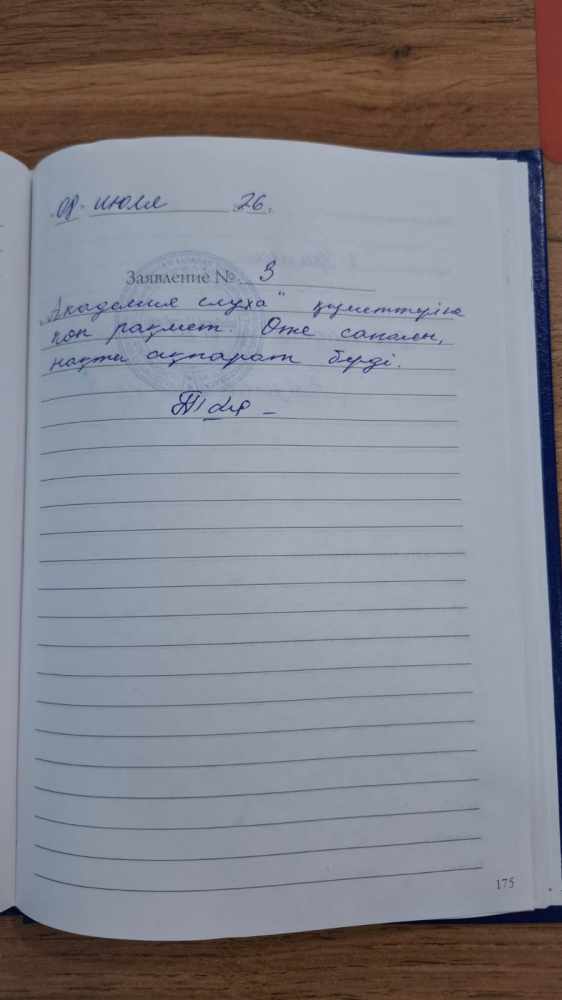 09. июля 26.
Заявление № 3
„Академия слуха" қызметтеріне
көп рахмет. Өте сапалы,
нақты ақпарат берді.
175